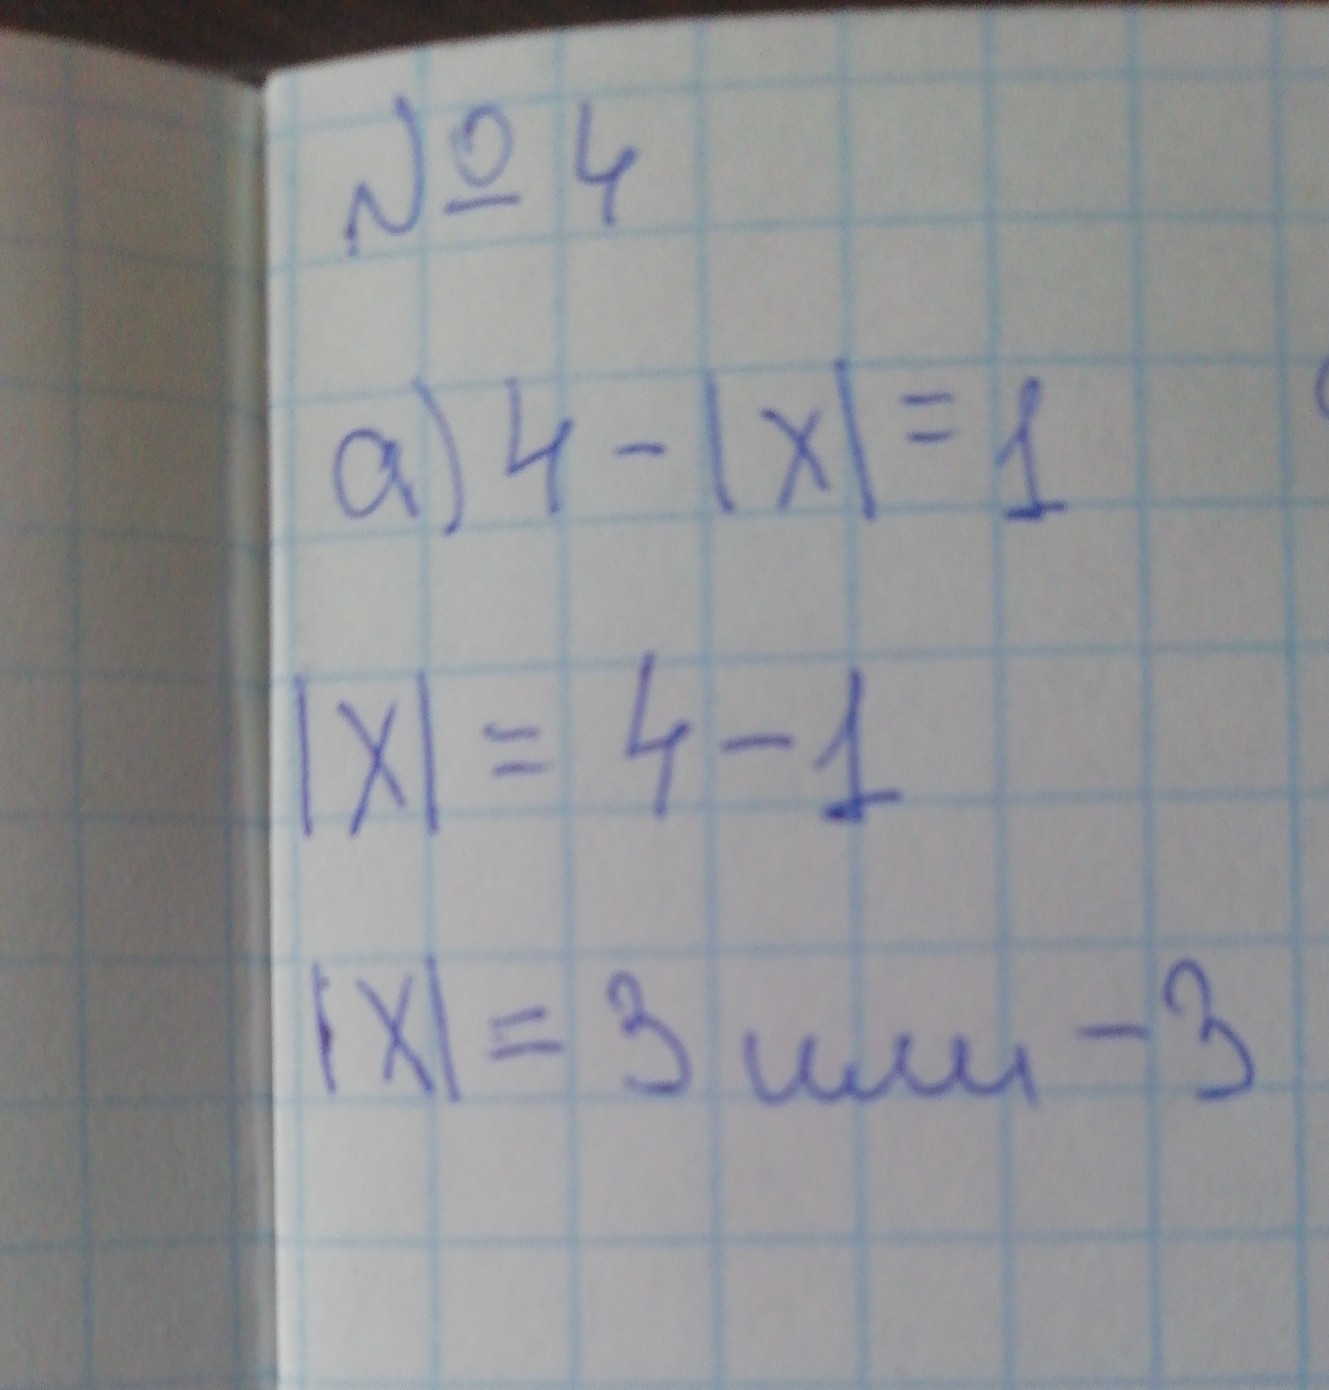 № 4
а) 4 - |x| = 1
|x| = 4 - 1
|x| = 3 или - 3